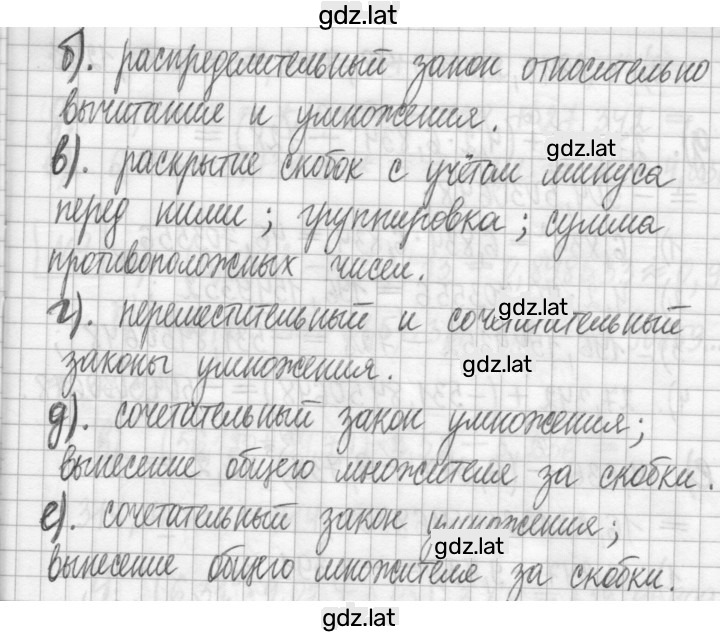 gdz.lat
б). распределительный закон относительно
вычитание и умножения.
gdz.lat
в). раскрытие скобок с учётом минуса
перед ними; группировка; сумма
противоположных чисел.
gdz.lat
г). переместительный и сочетательный
законы умножения.
gdz.lat
д). сочетательный закон умножения;
вынесение общего множителя за скобки.
е). сочетательный закон умножения;
gdz.lat
вынесение общего множителя за скобки.
gdz.lat